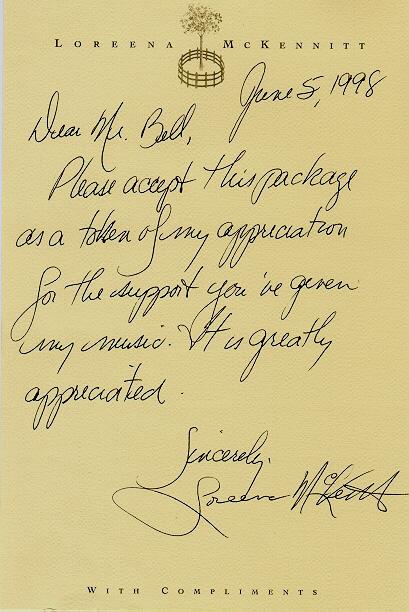 LOREENA MCKENNITT
June 5, 1998
Dear Mr. Bell,
Please accept this package
as a token of my appreciation
for the support you've given
my music. It is greatly
appreciated.
Sincerely,
Loreena McKennitt
WITH COMPLIMENTS